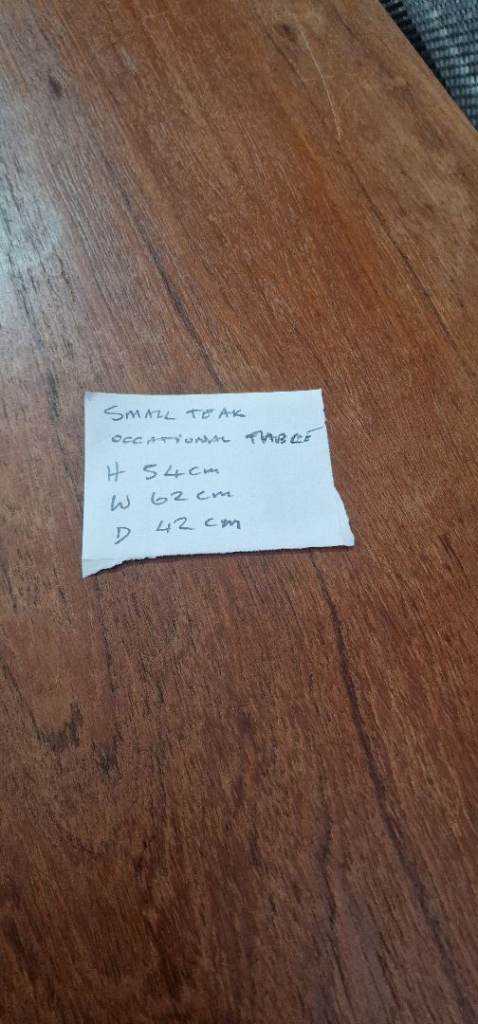 SMALL TEAK
OCCATIONAL TABLE
H 54cm
W 62cm
D 42 cm